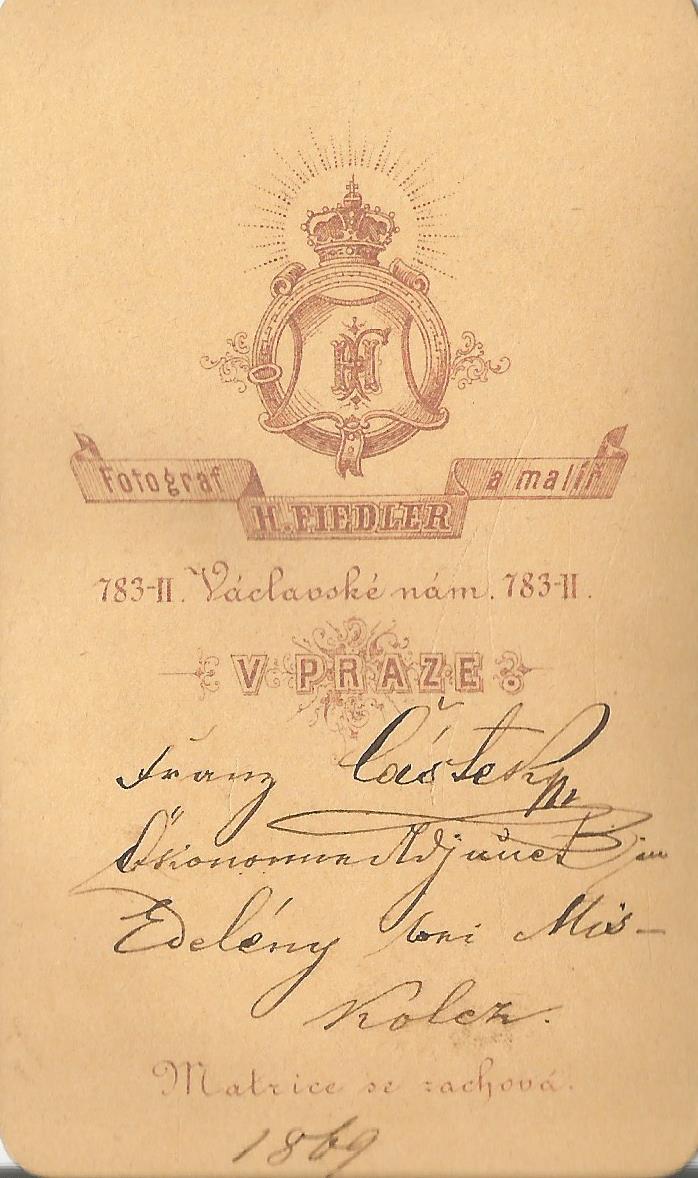 HF
Fotograf a malíř
H. FIEDLER
783-II. Václavské nám. 783-II.
V PRAZE
Franz Částek
Ökonomie Adjunct in
Edelény bei Mis-
kolcz.
Matrice se zachová.
1869